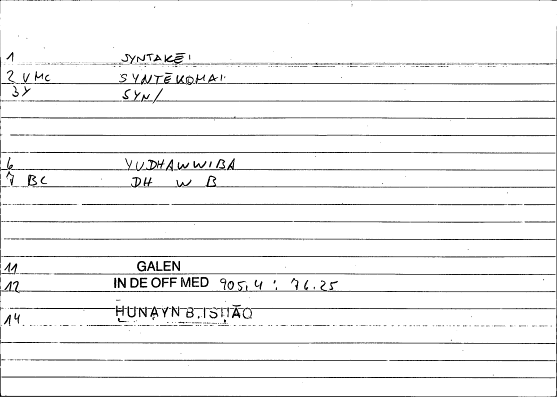 1 SYNTAKEI
2 VMC SYNTĒKOMAI
3Y SYN/
6 YUDHAWWIBA
7 BC DH W B
11 GALEN
12 IN DE OFF MED 905,4 : 76.25
14 ḤUNAYN B. ISḤĀQ